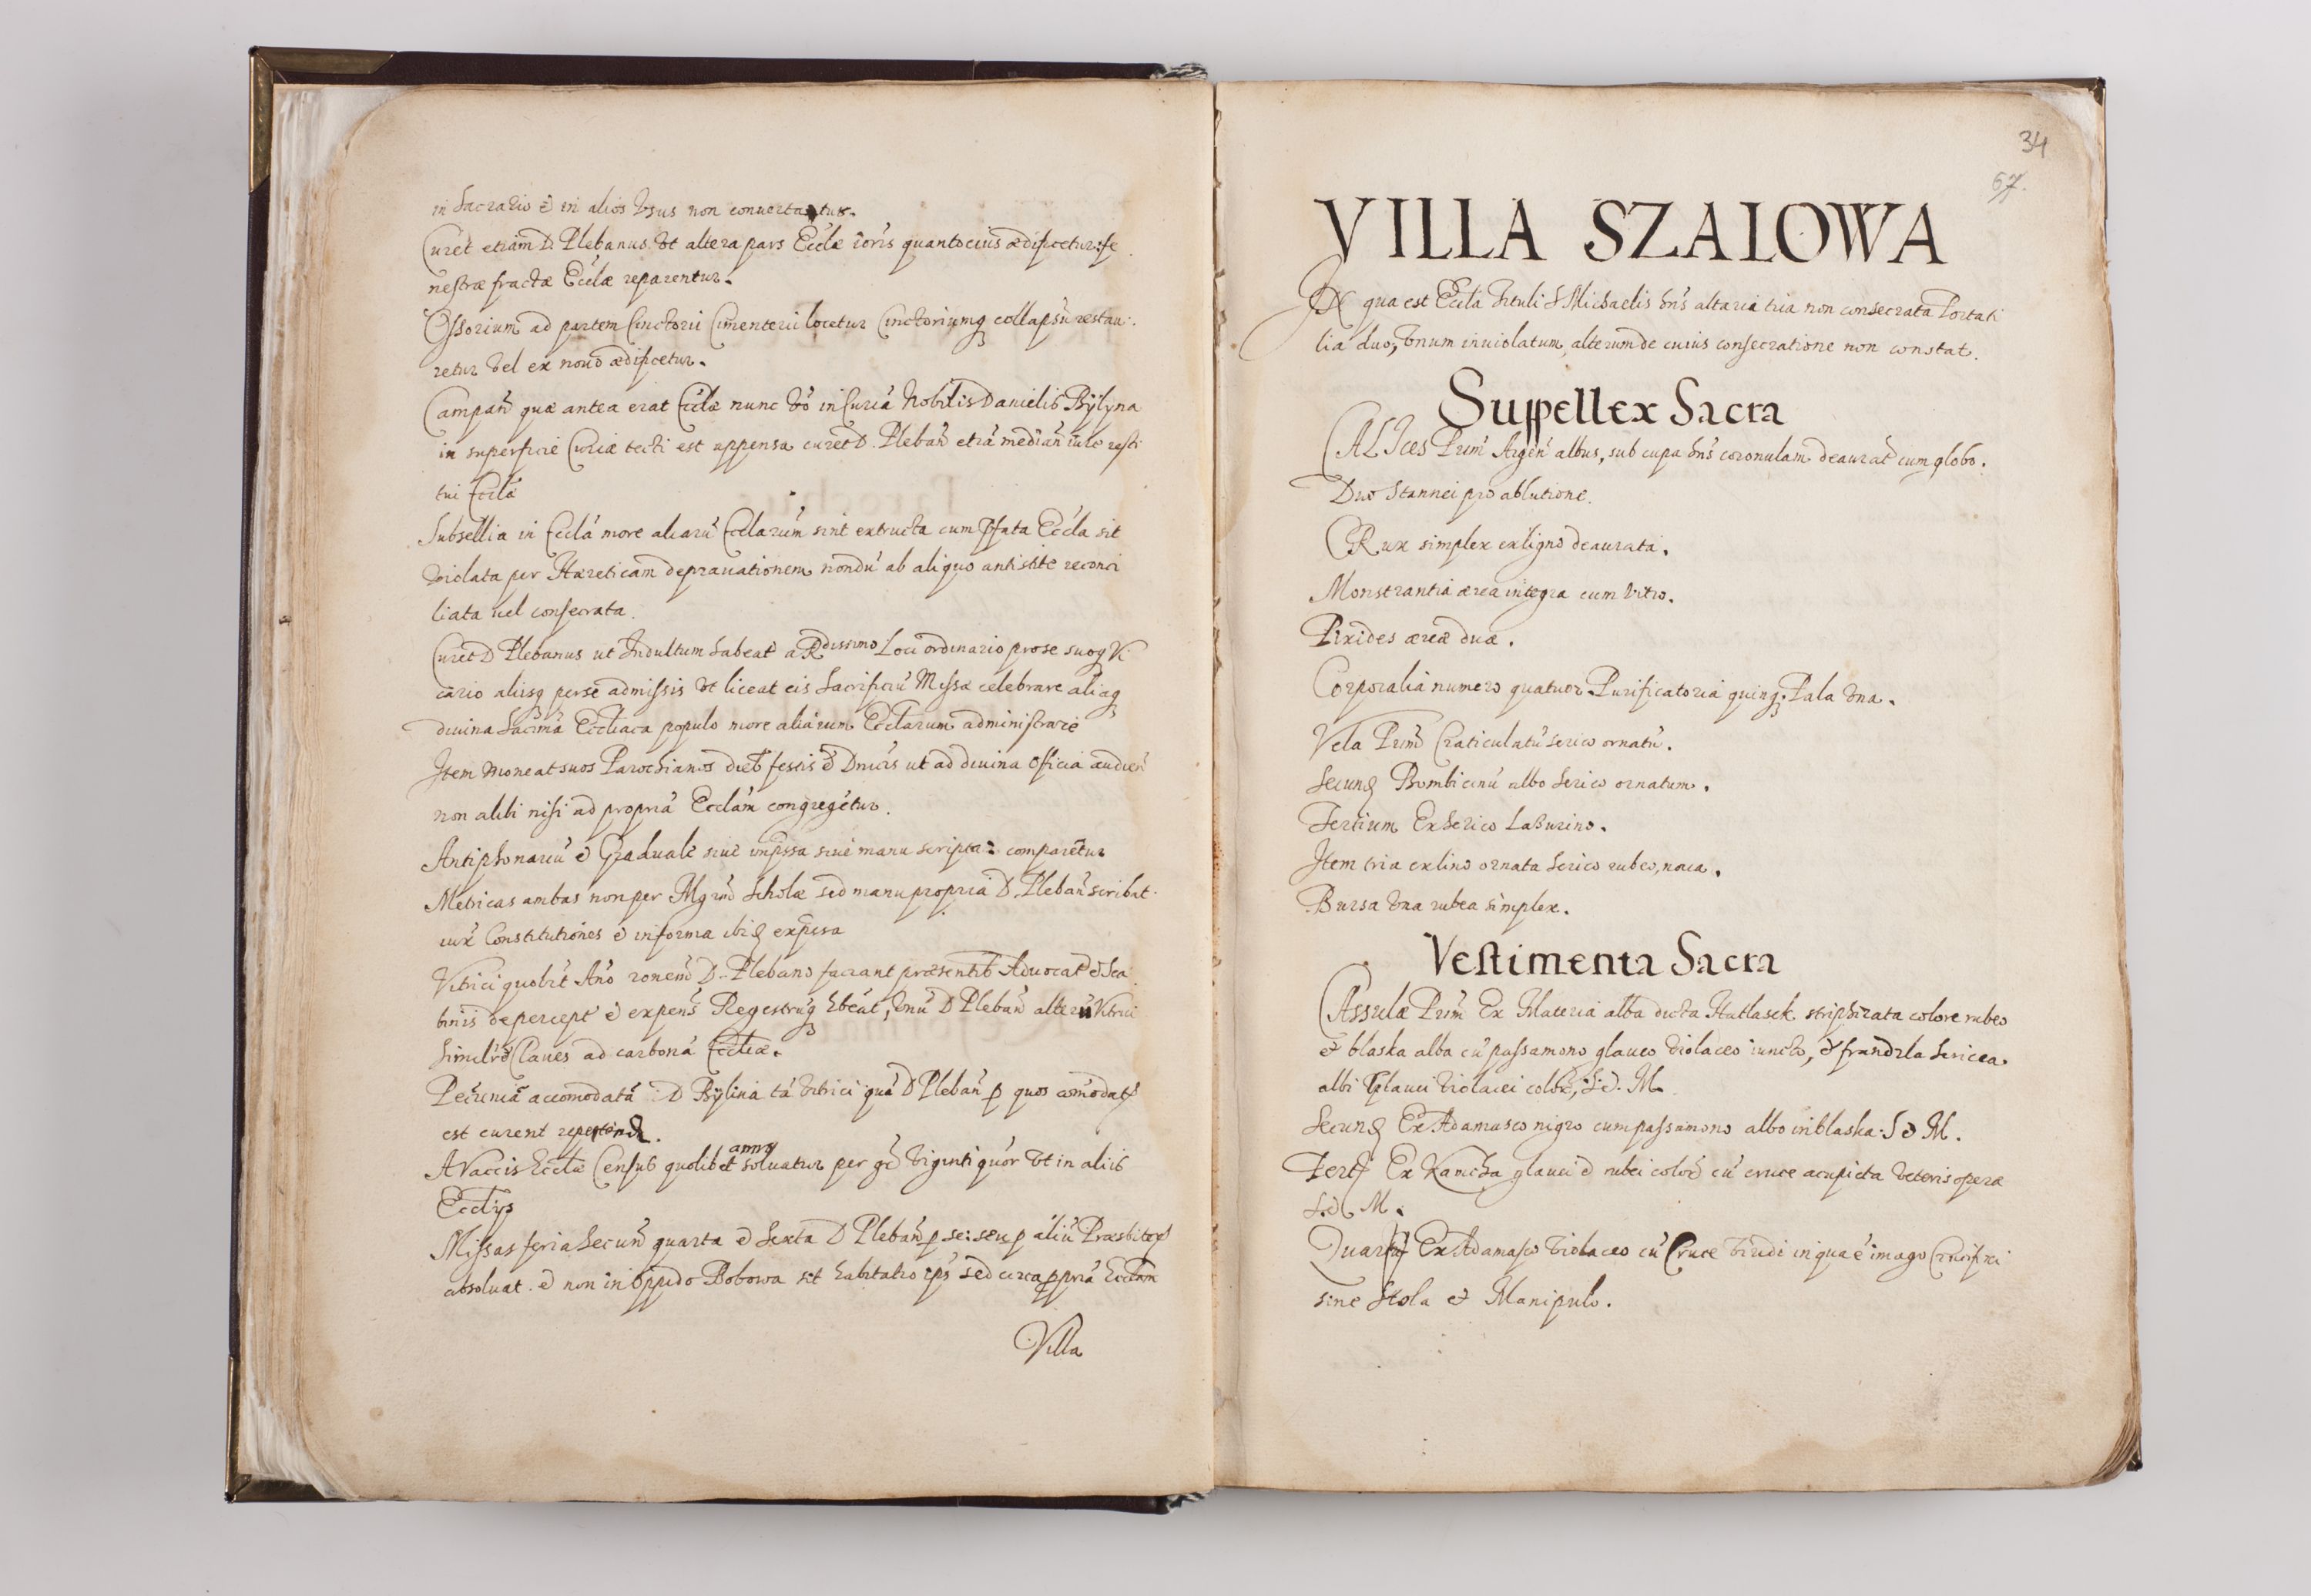 in Sacrario è in alios vsus non conuertantur.
Curet etiam D. Plebanus. vt altera pars Eccłæ ioris quantocius ædificetur: fe
nestræ fractæ Eccłæ reparentur.
Ossorium ad partem Cinctorii Cimenterii locetur Cinctoriumq collapsũ restau:
retur vel ex nouo ædificetur.
Campañ quæ antea erat Eccłæ nunc vo in Curia Nobilis Danielis Bÿlyna
in superficie Curiæ tecti est appensa curet D. Plebañ etiã mediañ iure resti
tui Eccłæ
Subsellia in Eccła more aliarũ Eccłarum sint extructa cum pfata Eccła sit
violata per Hæreticam deprauationem nondũ ab aliquo antistite reconci
liata uel consecrata.
Curet D Plebanus ut Indultum habeat a Rdissimo Loci ordinario pro se suoq Vi
cario aliisq per se admissis vt liceat eis Sacrificiũ Missæ celebrare aliaq
diuina Sacrma Eccliaca populo more aliarum Ecclarum administrare
Item moneat suos Parochianos dieb festis è Dnicis ut ad diuina Officia audien
non alibi nisi ad propriã Ecclam congregẽtur.
Antiphonariũ è Graduale siue impssa siue manu scripta: comparẽtur
Metricas ambas non per Mgrm Scholæ sed manu propria D. Plebañ scribat
iux Constitutiones è in forma ibiq expssa
Vitrici quolibt Año ronem D. Plebano faciant præsentib Aduocat è Sca
binis de percept è expens Regestrũq hbeat, vnũ D Plebañ alterũ Vitrici
Simil è Claues ad carbonã Eccliæ.
Pecuniã accomodatã D Bÿlina tã vitrici quã D Plebañ p quos acmodat
est curent
A Vaccis Eccliæ Census quolibet anno soluatur per gr viginti quor vt in aliis
Eccliis
Missas feria Secun quarta è Sexta D Plebañ p se: seu p aliũ Præsbiter
absoluat. è non in oppido Bobowa sit habitatio eps sed circa ppriã Ecclam
Villa
34
67.
VILLA SZALOWA
IN qua est Eccła tituli S Michaelis hns altaria tria non consecrata Portati
lia duo, vnum inuiolatum, alterum de cuius consecratione non constat.
Suppellex Sacra
CALIces Prim Argeñ albus, sub cupa hns coronulam deaurat cum globo.
Duo Stannei pro ablutione.
CRux simplex ex ligno deaurata.
Monstrantia ærea integra cum vitro.
Pixides æreæ duæ.
Corporalia numero quatuor. Purificatoria quinq. Pala vna.
Vela Prim Craticulatũ serico ornatũ.
Secund Bombicinũ albo Serico ornatum.
Tertium Ex Serico Lasurino.
Item tria ex lino ornata Serico rubeo, noua.
Bursa vna rubea simplex.
Vestimenta Sacra
CAssulæ Prim Ex Materia alba dicta Hatlasek striphizata colore rubeo
et blaska alba cũ passamono glauco violaceo iuncto, è frandzla Sericea
albi glauci violacei color, S. è. M.
Secund Ex Adamasco nigro cum passamono albo in blaska. S è M.
Terti Ex Kamcha glauci è rubei color cũ cruce acupicta veteris operæ
S. è M.
Quarta Ex Adamasco violaceo cũ Cruce viridi in qua ẽ imago Crucifixi
sine Stola et Manipulo.